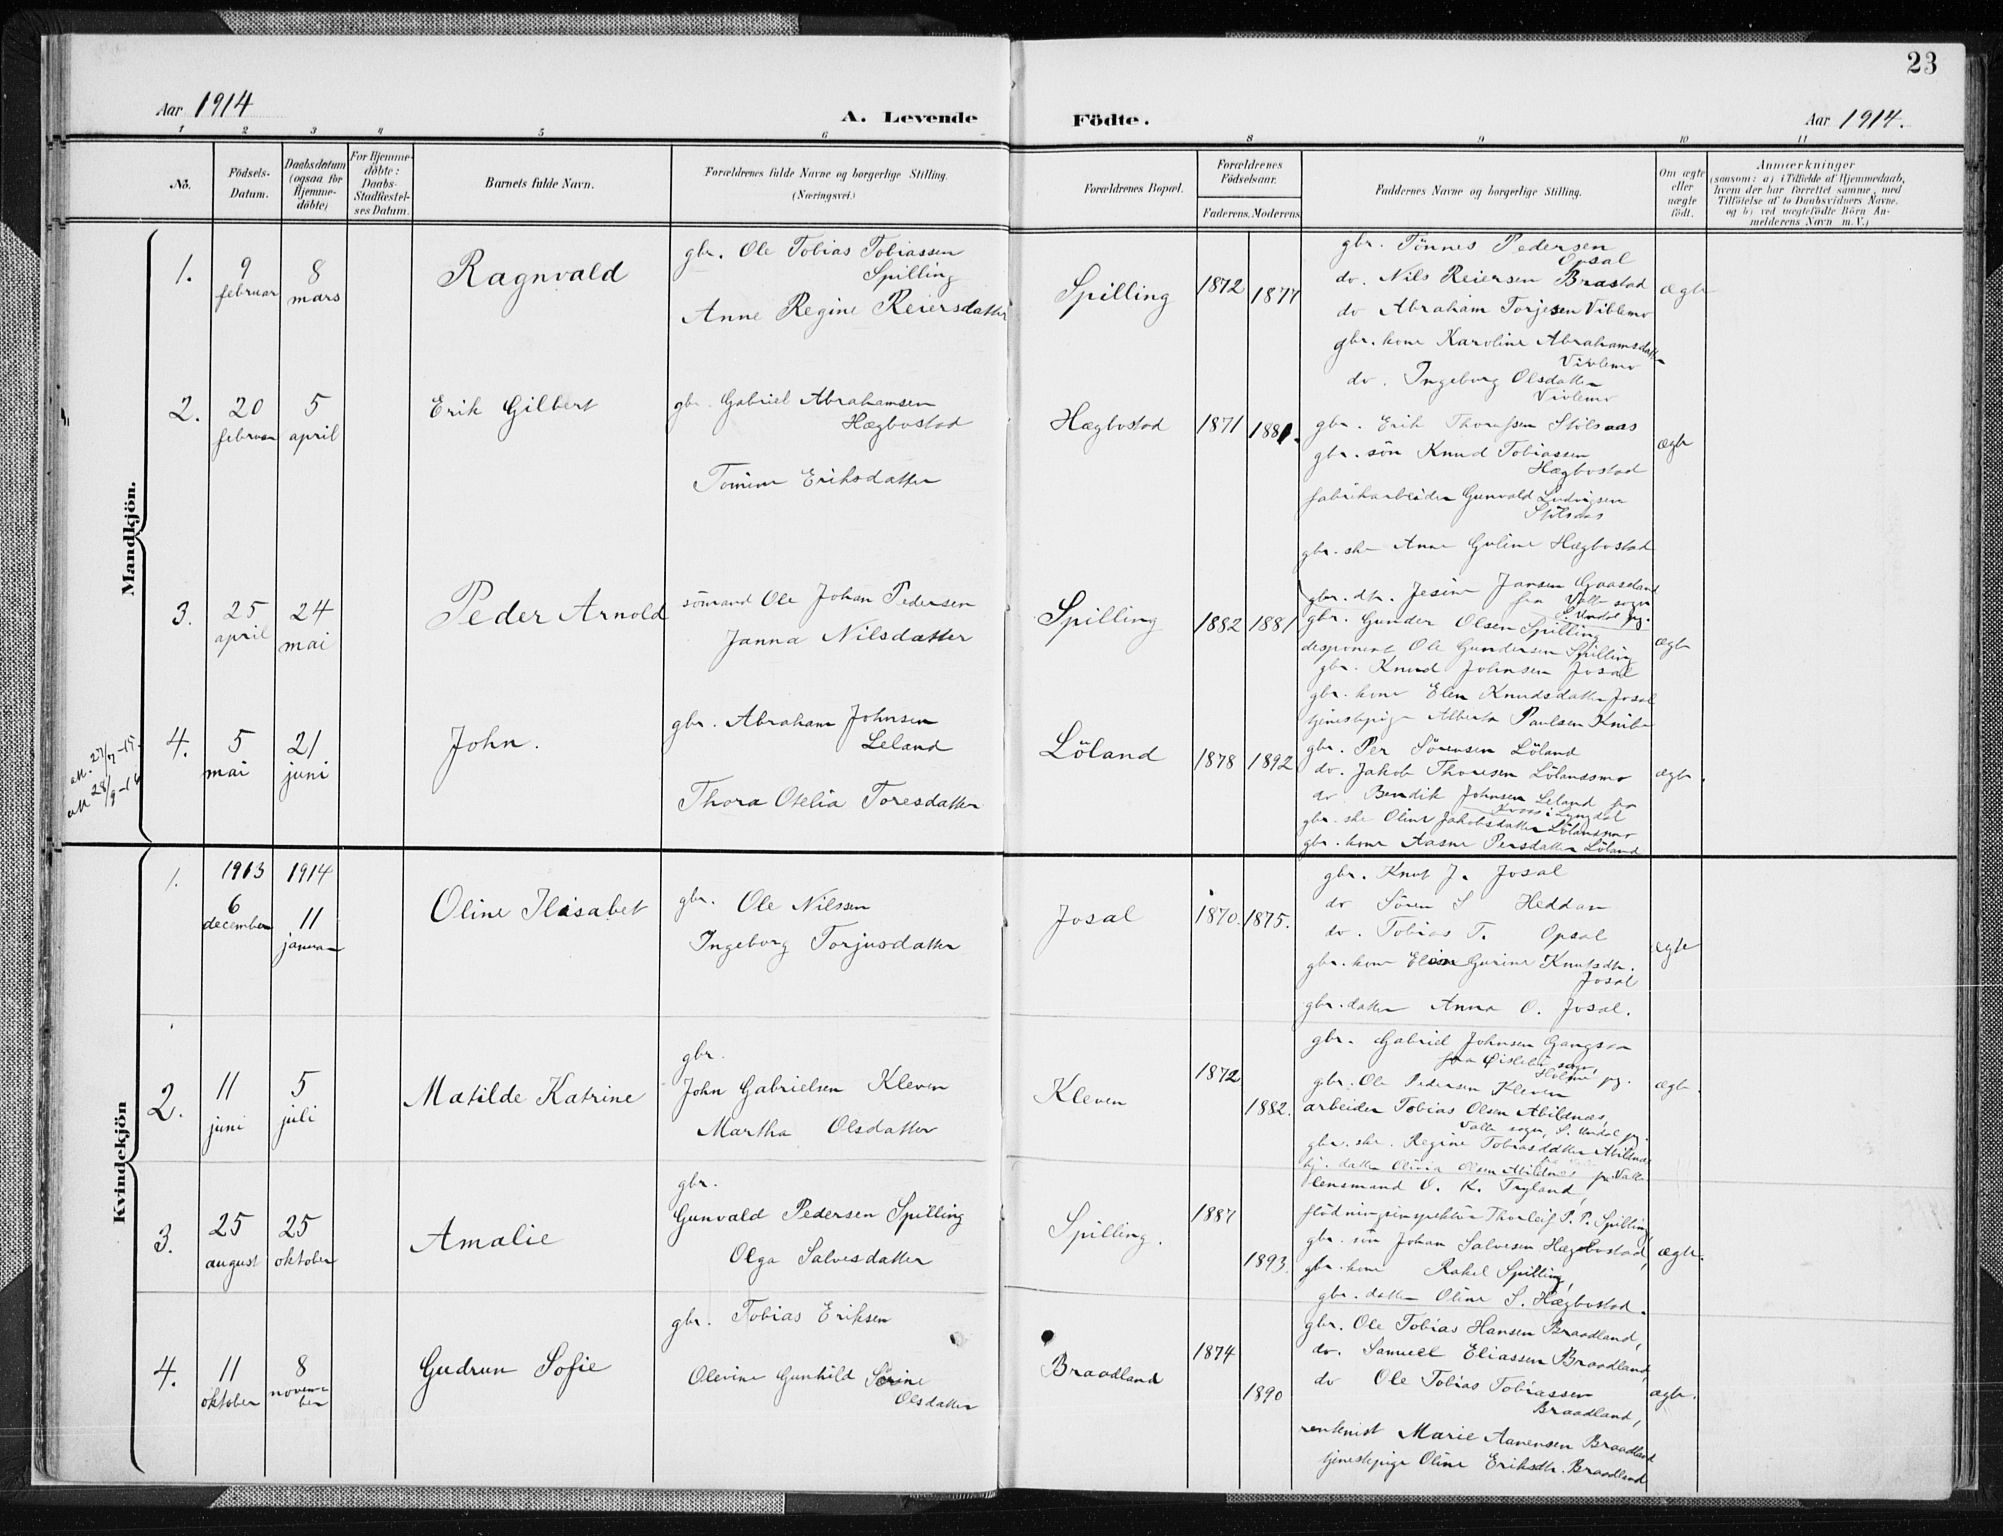 23
Aar 1914
A. Levende Födte.
Aar 1914.
1 2 3 4 5 6 8 9 10 11
No.
Födsels-
Datum.
Daabsdatum
(ogsaa for
Hjemme-
döbte)
For Hjemme-
döbte:
Daabs-
Stadfæstel-
ses Datum.
Barnets fulde Navn.
Forældrenes fulde Navne og borgerlige Stilling.
(Næringsvei.)
Forældrenes Bopæl.
Forældrenes
Födselsaar.
Faderens. Moderens.
Faddernes Navne og borgerlige Stilling.
Om ægte
eller
uægte
født.
Anmærkninger
(saasom: a) i Tilfælde af Hjemmedaab,
hvem der har forrettet samme, med
Tilföielse af to Daabsvidners Navne.
og b) ved uægtefödte Börn An-
melderens Navn m. V.)
Mandkjön.
1.
9
februar
8
mars
Ragnvald
gbr. Ole Tobias Tobiassen
Spilling
Anne Regine Reiersdatter
Spilling
1872
1877
gbr. Tönnes Pedersen
Opsal
do. Nils Reiersen Brastad
do Abraham Torjesen Viblemo
gbr. kone Karoline Abrahamsdatter
Vivlemo
do. Ingeborg Olsdatter
Vivlemo
ægte
2.
20
februar
5
april
Erik Gilbert
gbr. Gabriel Abrahamsen
Hægbostad
Tomine Eriksdatter
Hægbostad
1871
1881.
gbr. Erik Thorussen Stölsaas
gbr. sön Knud Tobiassen
Hægbostad
fabrikarbeider Gunvald Ludvigsen
Stölsaas
gbr. ske Anne Guline Hægbostad
ægte
3.
25
april
24
mai
Peder Arnold
sömand Ole Johan Pedersen
Janna Nilsdatter
Spilling
1882
1881
gbr. dtr. Jesine Jansen Gaasland
fra Valle sogn
S. Undal pg.
gbr. Gunder Olsen Spilling
desponent Ole Gundersen Spilling
gbr. Knud Johnsen Josal
gbr. kone Elen Knudsdatter Josal
tjenestepige Alberta Paulsen
ægte
4.
att. 27/7-15.
att 28/9-16
5
mai
21
juni
John.
gbr. Abraham Johnsen
Leland
Thora Otelia Toresdatter
Löland
1878
1892
gbr. Per Sörensen Löland
do. Jakob Thoresen Lölandsmo
do Bendik Johnsen Leland fra
Kvaas i Lyngdal
gbr. ske Oline Jakobsdatter Lölandsmo
gbr. kone Aasne Persdatter Löland
ægte.
Kvindekjön
1.
1913
6
december
1914
11
januar
Oline Elisabet
gbr. Ole Nilssen
Ingeborg Torjusdatter
Josal
1870
1875.
gbr. Knut J. Josal
do Sören S Heddan
do. Tobias T. Opsal
gbr. kone Gurine Knutsdtr.
Josal
gbr. datter Anna O. Josal.
ægte
2.
11
juni
5
juli
Matilde Katrine
gbr.
John Gabrielsen Kleven
Martha Olsdatter
Kleven
1872
1882.
gbr. Gabriel Johnsen Gangsaa
fra Öislebö sogn,
Holme pg.
gbr. Ole Pedersen Kleven
arbeider Tobias Olsen Abildnæs,
Valle sogn, S. Undal pg.
gbr. ske. Regine Tobiasdatter Abildnæs
datter Olivia Olsen Abildnæs fr. Valle
ægte.
3.
25
august
25
oktober
Amalie
gbr.
Gunvald Pedersen Spilling
Olga Salvesdatter
Spilling.
1887
1893.
lensmand O. K. Tryland,
flödningsinspektör Thorleif P. P. Spilling
gbr. sön Johan Salvesen Hægebostad,
gbr. kone Rakel Spilling,
gbr. datter Oline S. Hægbostad.
ægte.
4.
11
oktober
8
novem-
ber
Gudrun Sofie
gbr. Tobias Eriksen
Olevine Gunhild Sörine
Olsdatter
Braadland
1874
1890
gbr. Ole Tobias Hansen Braadland,
do. Samuel Eliassen Braadland,
do Ole Tobias Tobiassen
Braadland,
rentenist Marie Aanensen Braadland
tjenestepige Oline Eriksdtr. Braadland
ægte.